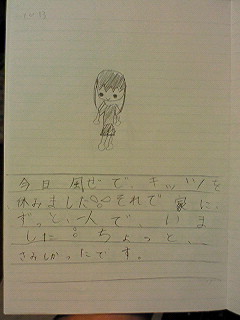 今日 風ぜで、キッツを
休みました。それで 家に、
ずっと、一人で いま
した。ちょっと、
さみしかったです。